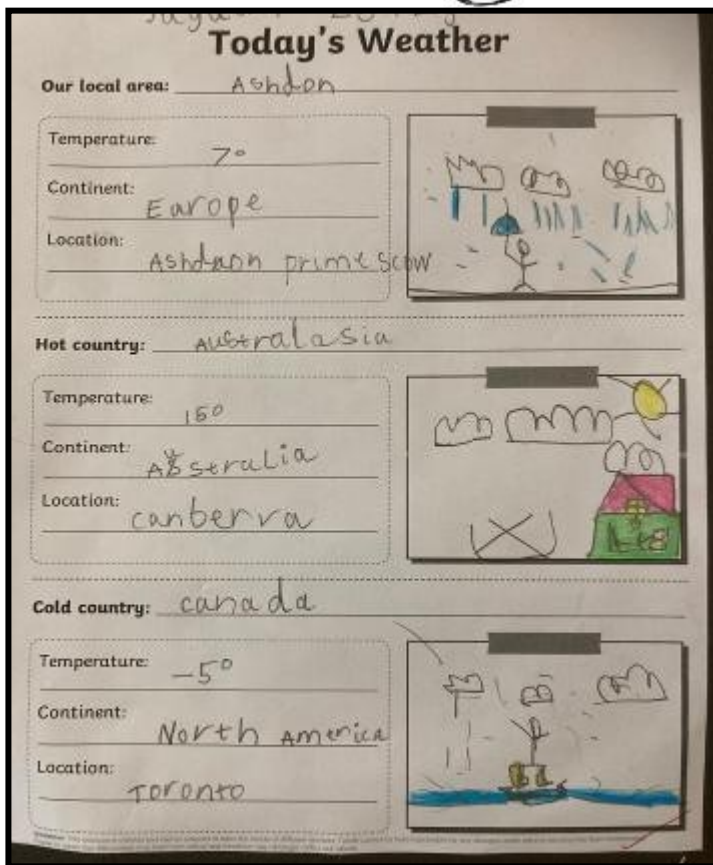 Today's Weather
Our local area: Ashdon
Temperature: 7°
Continent: Europe
Location: Ashdaon prime scow
Hot country: Australasia
Temperature: 15°
Continent: Australia
Location: canberra
Cold country: canada
Temperature: -5°
Continent: North America
Location: Toronto